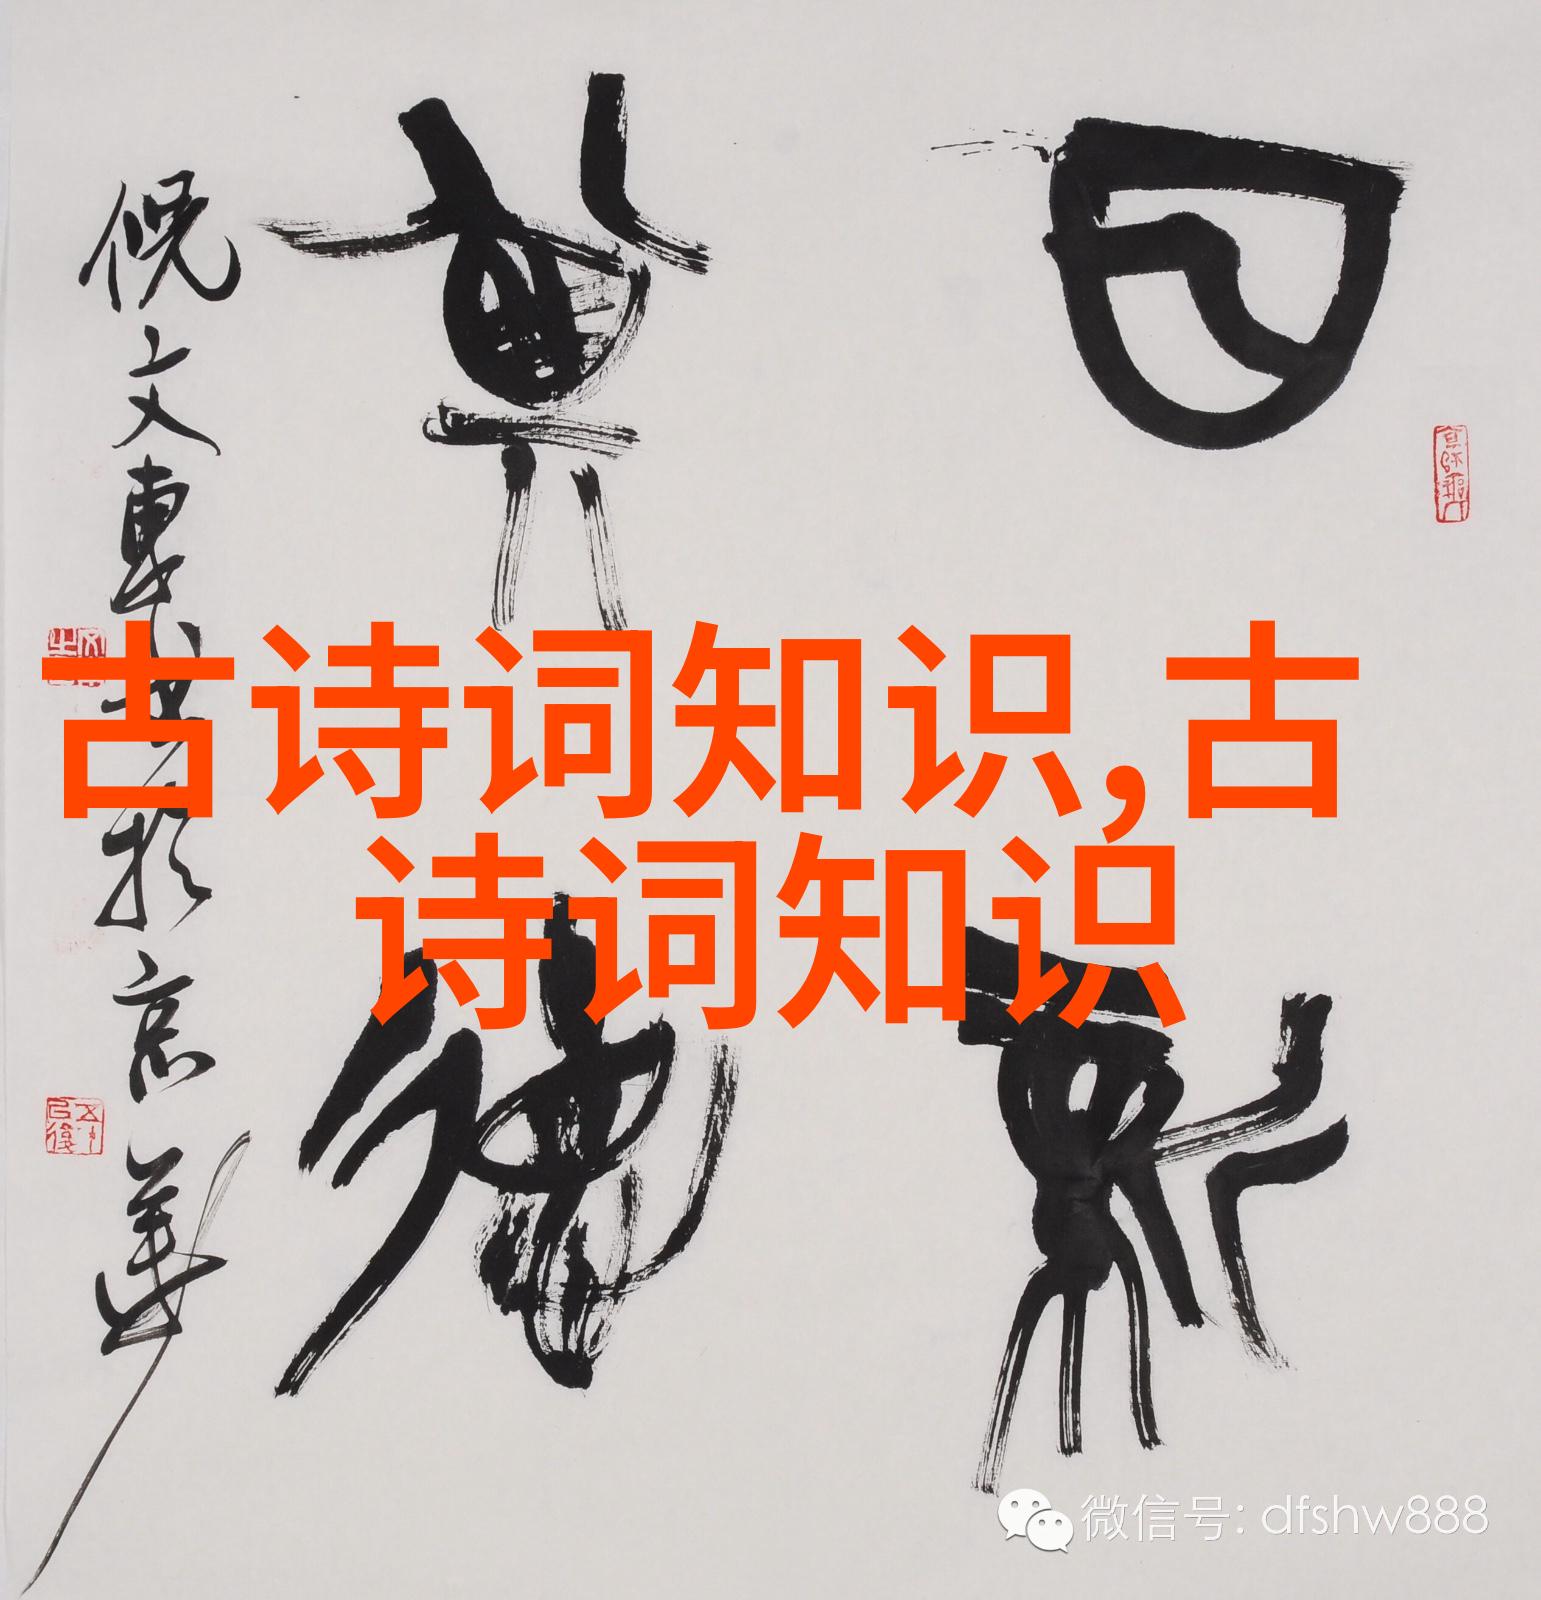 日新
其德
倪文東書於京華
古诗词知识,古
诗词知识
微信号: dfshw888